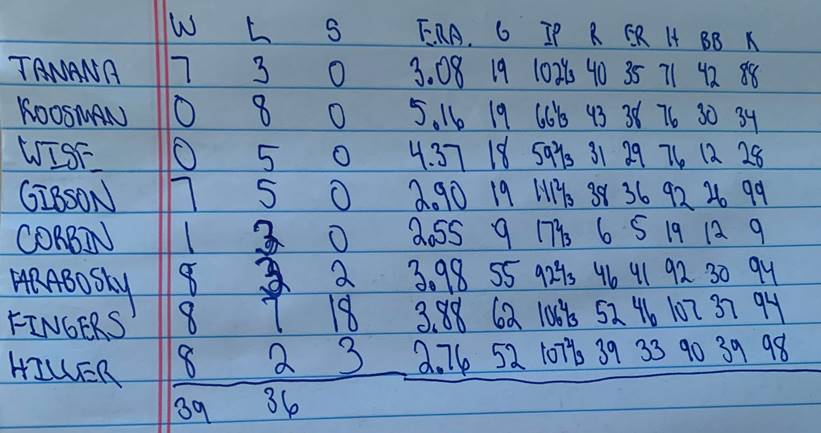 W L S ERA. G IP R ER H BB K
TANANA 7 3 0 3.08 19 102⅓ 40 35 71 42 88
KOOSMAN 0 8 0 5.16 19 66⅓ 43 38 76 30 34
WISE 0 5 0 4.37 18 59⅔ 31 29 76 12 28
GIBSON 7 5 0 2.90 19 111⅔ 38 36 92 26 99
CORBIN 1 3 0 2.55 9 17⅔ 6 5 19 12 9
HRABOSKY 8 3 2 3.98 55 92⅔ 46 41 92 30 94
FINGERS 8 7 18 3.88 62 106⅔ 52 46 107 37 94
HILLER 8 2 3 2.76 52 107⅔ 39 33 90 39 98
39 36